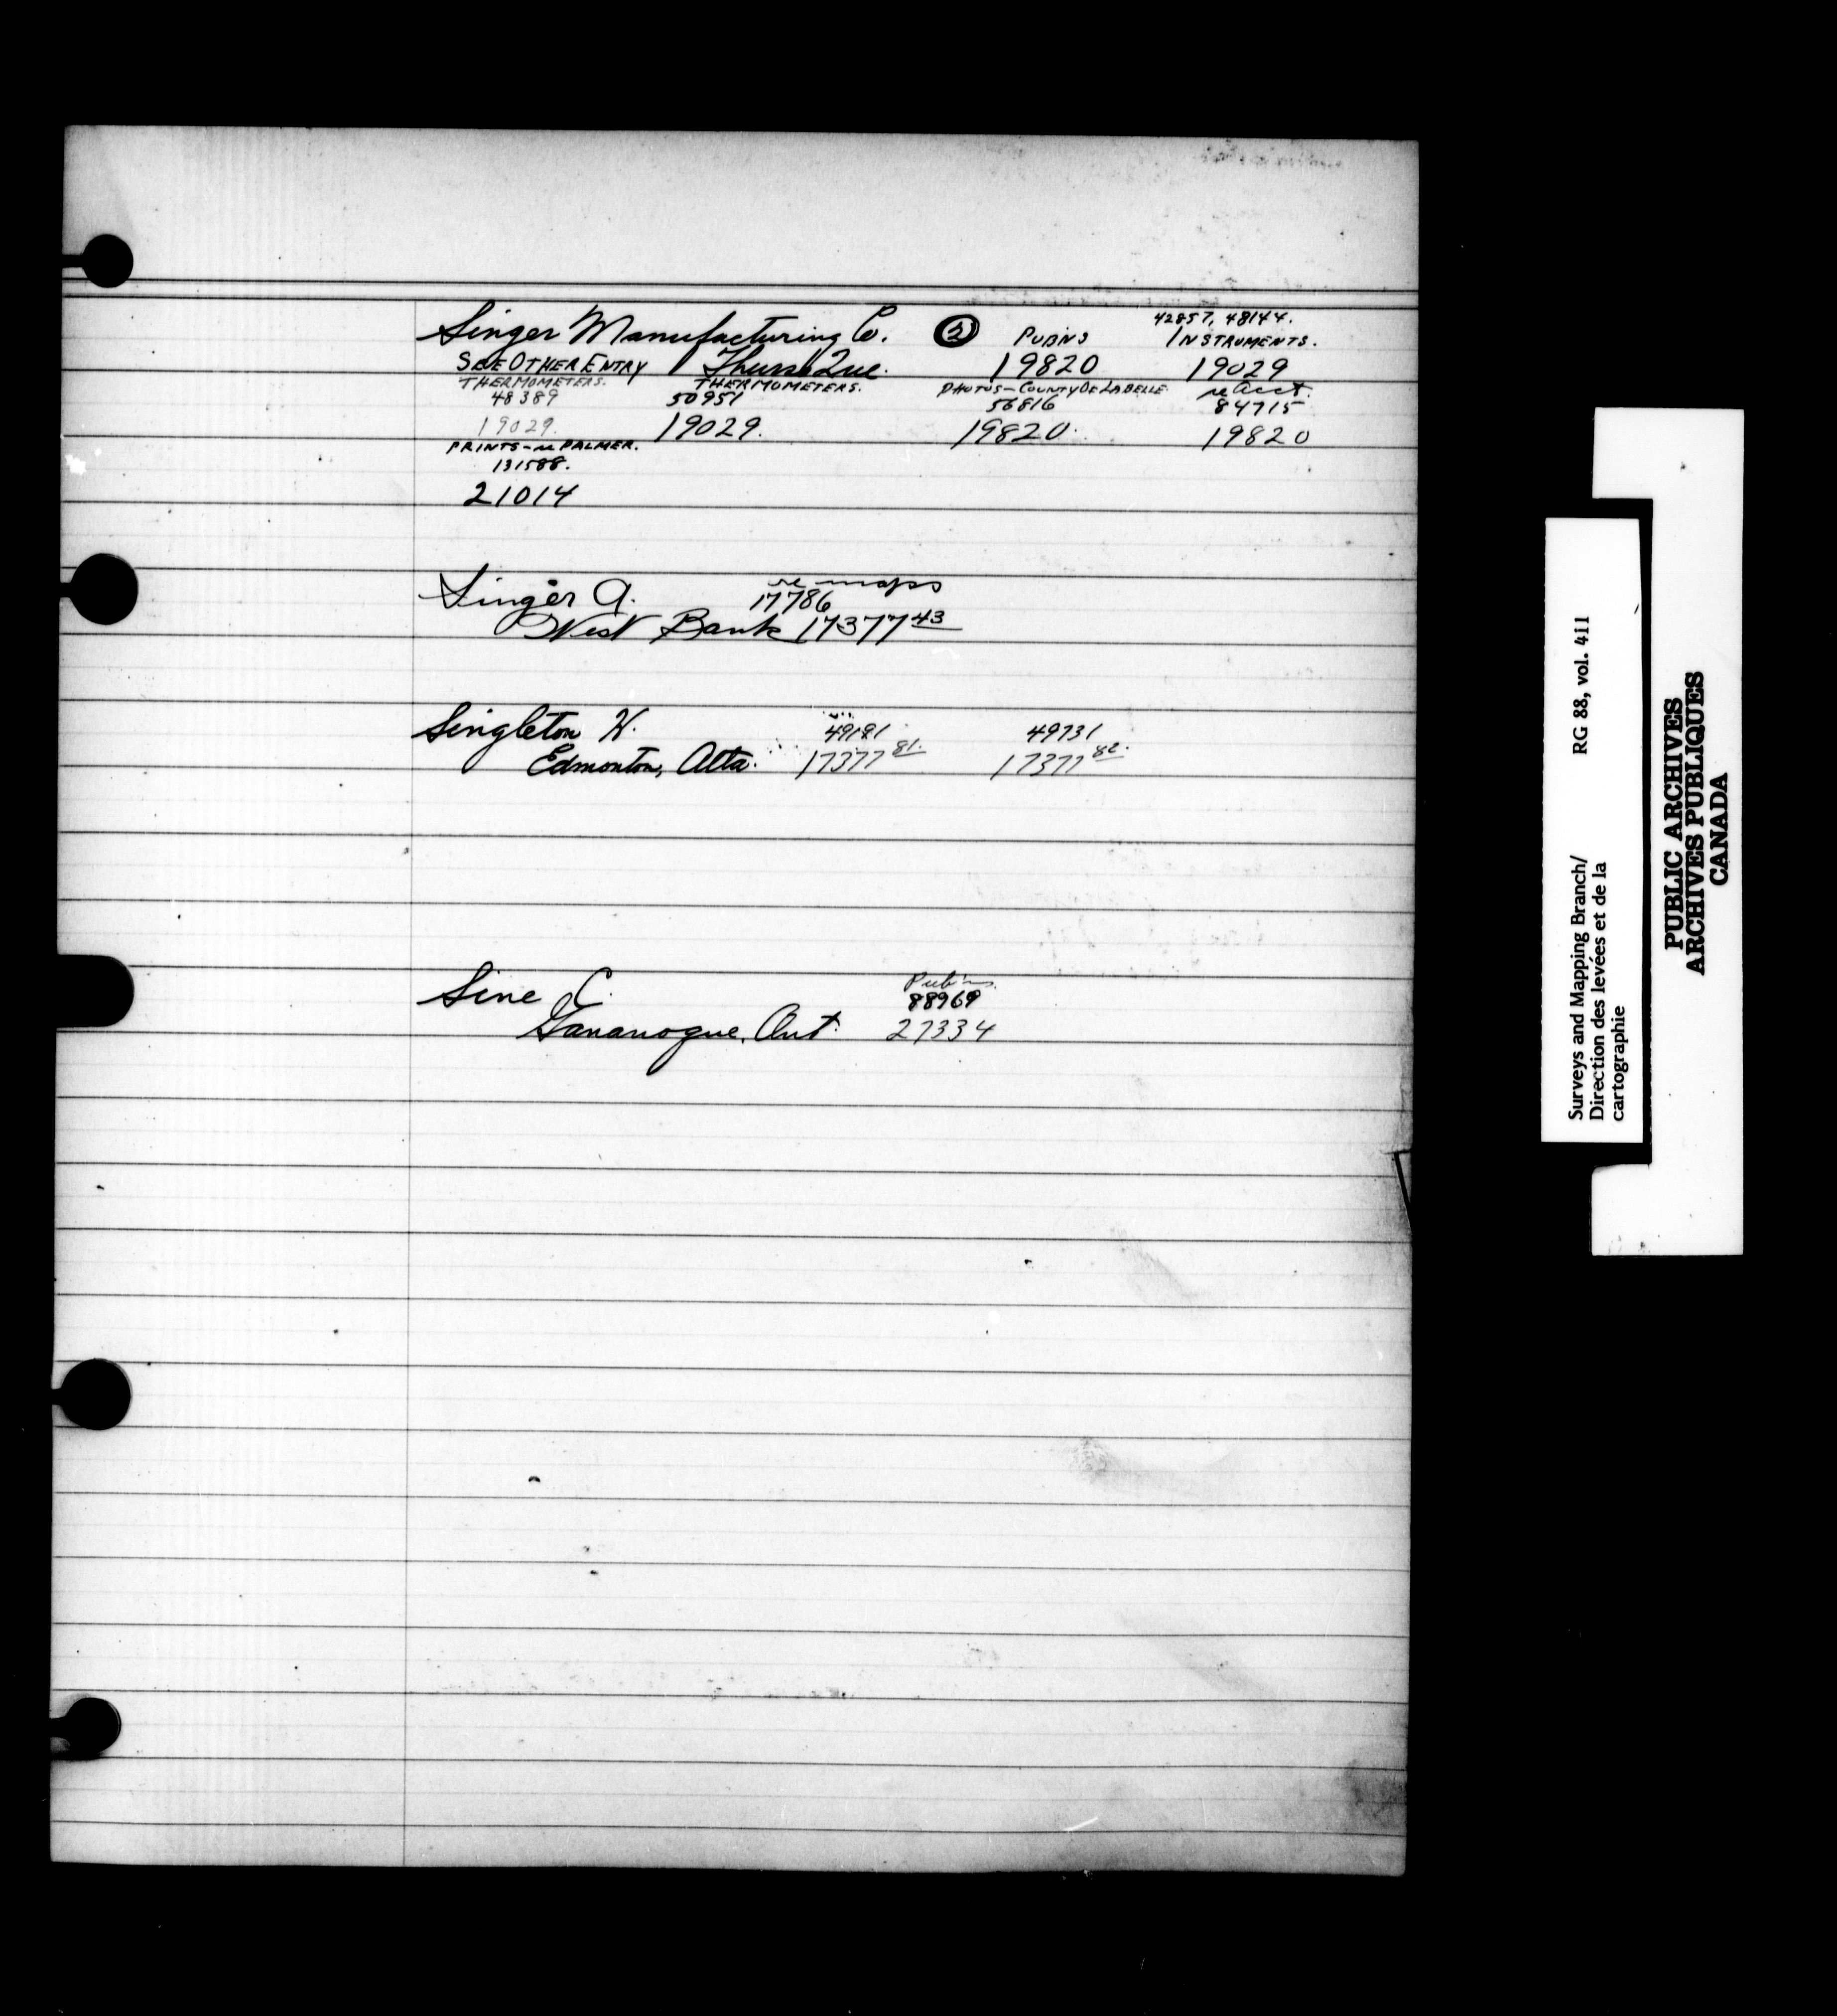 Singer Manufacturing Co. (2) PUBNS 42857, 48144. INSTRUMENTS.
SEE OTHER ENTRY Thurso Que. 19820 19029
THERMOMETERS. THERMOMETERS. PHOTOS-COUNTY DE LABELLE re Acct.
48389 50951 56816 84715
19029. 19029. 19820. 19820
PRINTS-re PALMER.
131588.
21014
Singer A. re maps
17786
West Bank 17377 43
Singleton H. 49181 49731
Edmonton, Alta. 17377 81. 17377 82.
Sine C. Pub'ns.
88969
Gananoque, Ont. 27334
Surveys and Mapping Branch/ RG 88, vol. 411
Direction des levées et de la
cartographie
PUBLIC ARCHIVES
ARCHIVES PUBLIQUES
CANADA